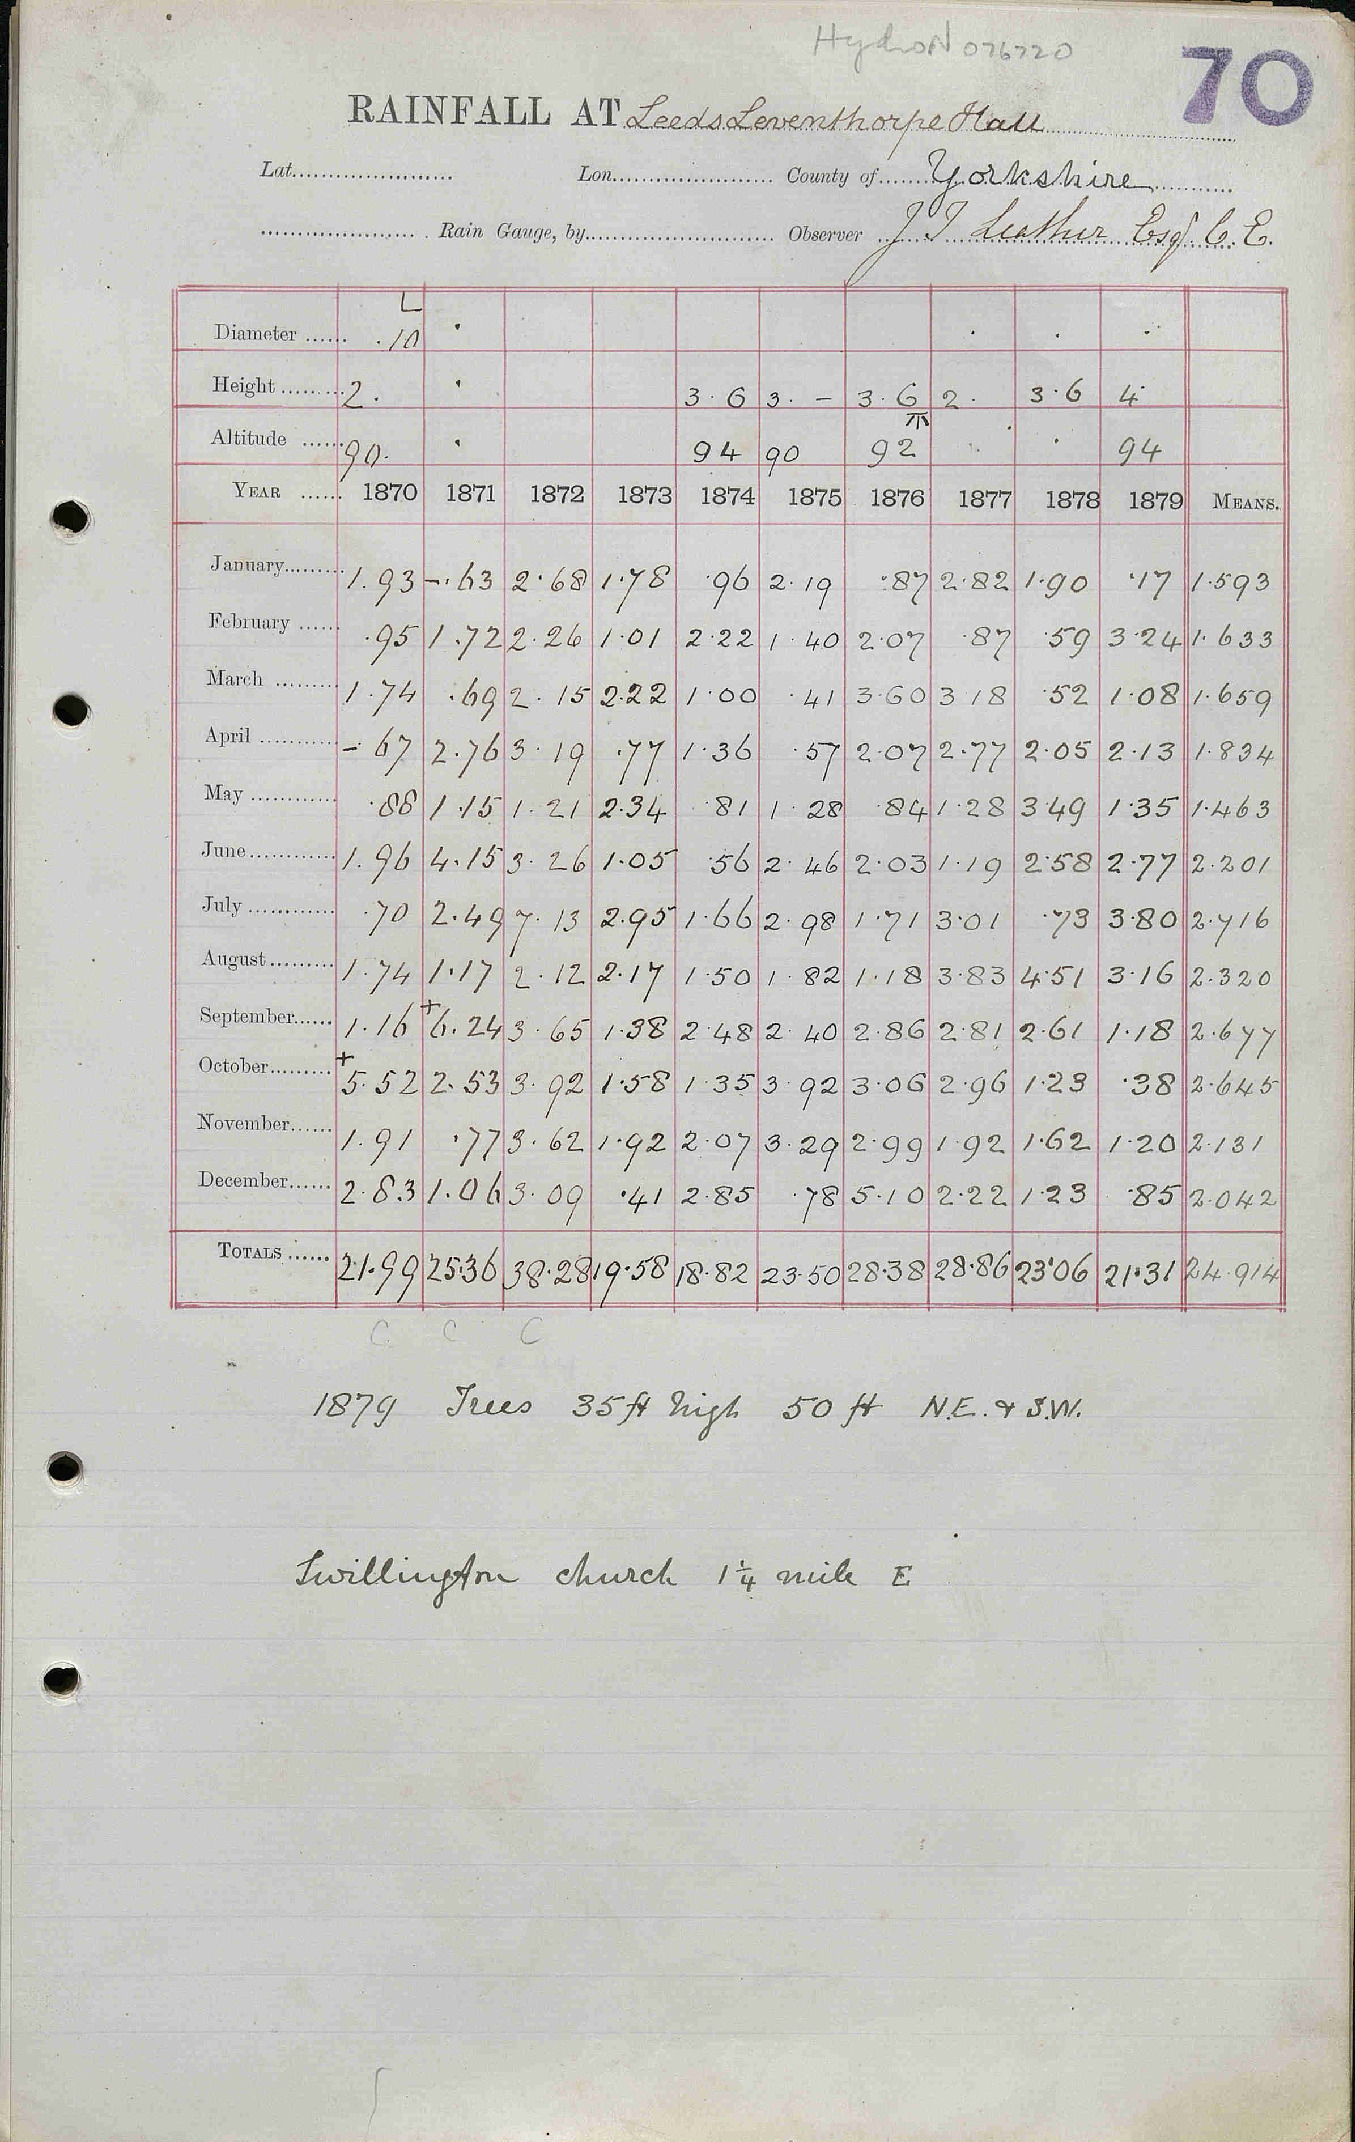 HydroN 076720
70
RAINFALL AT Leeds Leventhorpe Hall
Lat. Lon. County of Yorkshire
Rain Gauge, by Observer J T Leather Esq C.E.
L
Diameter ...... .10
Height ......... 2. 3.6 3. - 3.6 2. 3.6 4
Altitude ...... 90. 94 90 92 94
YEAR ...... 1870 1871 1872 1873 1874 1875 1876 1877 1878 1879 MEANS.
January......... 1.93 -.63 2.68 1.78 .96 2.19 .87 2.82 1.90 .17 1.593
February ...... .95 1.72 2.26 1.01 2.22 1.40 2.07 .87 .59 3.24 1.633
March ......... 1.74 .69 2.15 2.22 1.00 .41 3.60 3.18 .52 1.08 1.659
April ............ -.67 2.76 3.19 .77 1.36 .57 2.07 2.77 2.05 2.13 1.834
May ............ .88 1.15 1.21 2.34 .81 1.28 .84 1.28 3.49 1.35 1.463
June............ 1.96 4.15 3.26 1.05 .56 2.46 2.03 1.19 2.58 2.77 2.201
July ............ .70 2.49 7.13 2.95 1.66 2.98 1.71 3.01 .73 3.80 2.716
August......... 1.74 1.17 2.12 2.17 1.50 1.82 1.18 3.83 4.51 3.16 2.320
September...... 1.16 +6.24 3.65 1.38 2.48 2.40 2.86 2.81 2.61 1.18 2.677
October......... +5.52 2.53 3.92 1.58 1.35 3.92 3.06 2.96 1.23 .38 2.645
November...... 1.91 .77 3.62 1.92 2.07 3.29 2.99 1.92 1.62 1.20 2.131
December...... 2.83 1.06 3.09 .41 2.85 .78 5.10 2.22 1.23 .85 2.042
TOTALS ...... 21.99 25.36 38.28 19.58 18.82 23.50 28.38 28.86 23.06 21.31 24.914
C C C
1879 Trees 35 ft high 50 ft N.E. & S.W.
Swillington church 1 1/4 mile E